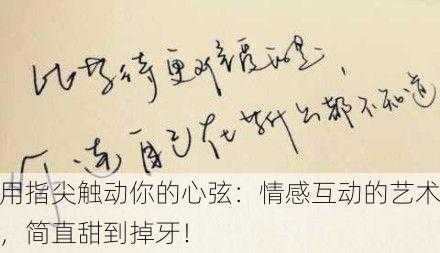 比等待更难受的是，
可连自己在等什么都不知道
用指尖触动你的心弦：情感互动的艺术
，简直甜到掉牙！